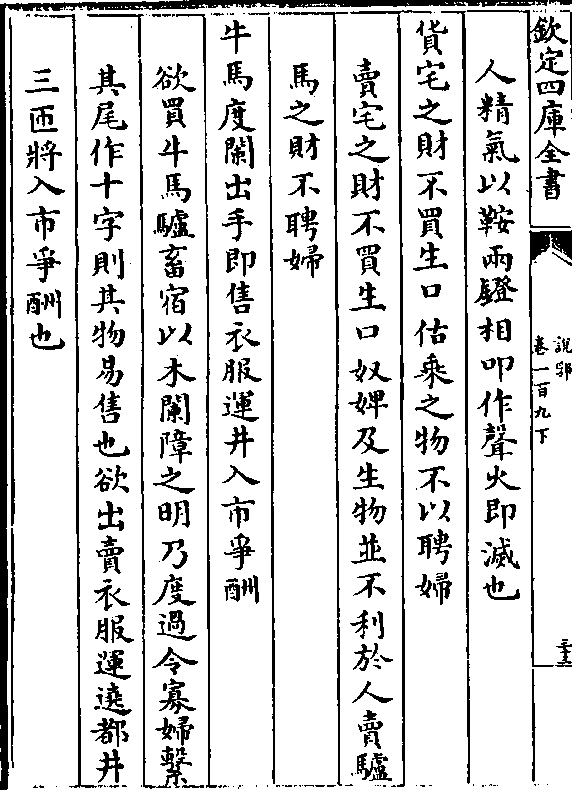 欽定四庫全書
說郛
卷一百九下
三十三
人精氣以鞍兩鐙相叩作聲火即滅也
貨宅之財不買生口估乘之物不以聘婦
賣宅之財不買生口奴婢及生物並不利於人賣驢
馬之財不聘婦
牛馬度闌出手即售衣服運井入市爭酬
欲買牛馬驢畜宿以木闌障之明乃度過令寡婦繫
其尾作十字則其物易售也欲出賣衣服運遶都井
三匝將入市爭酬也